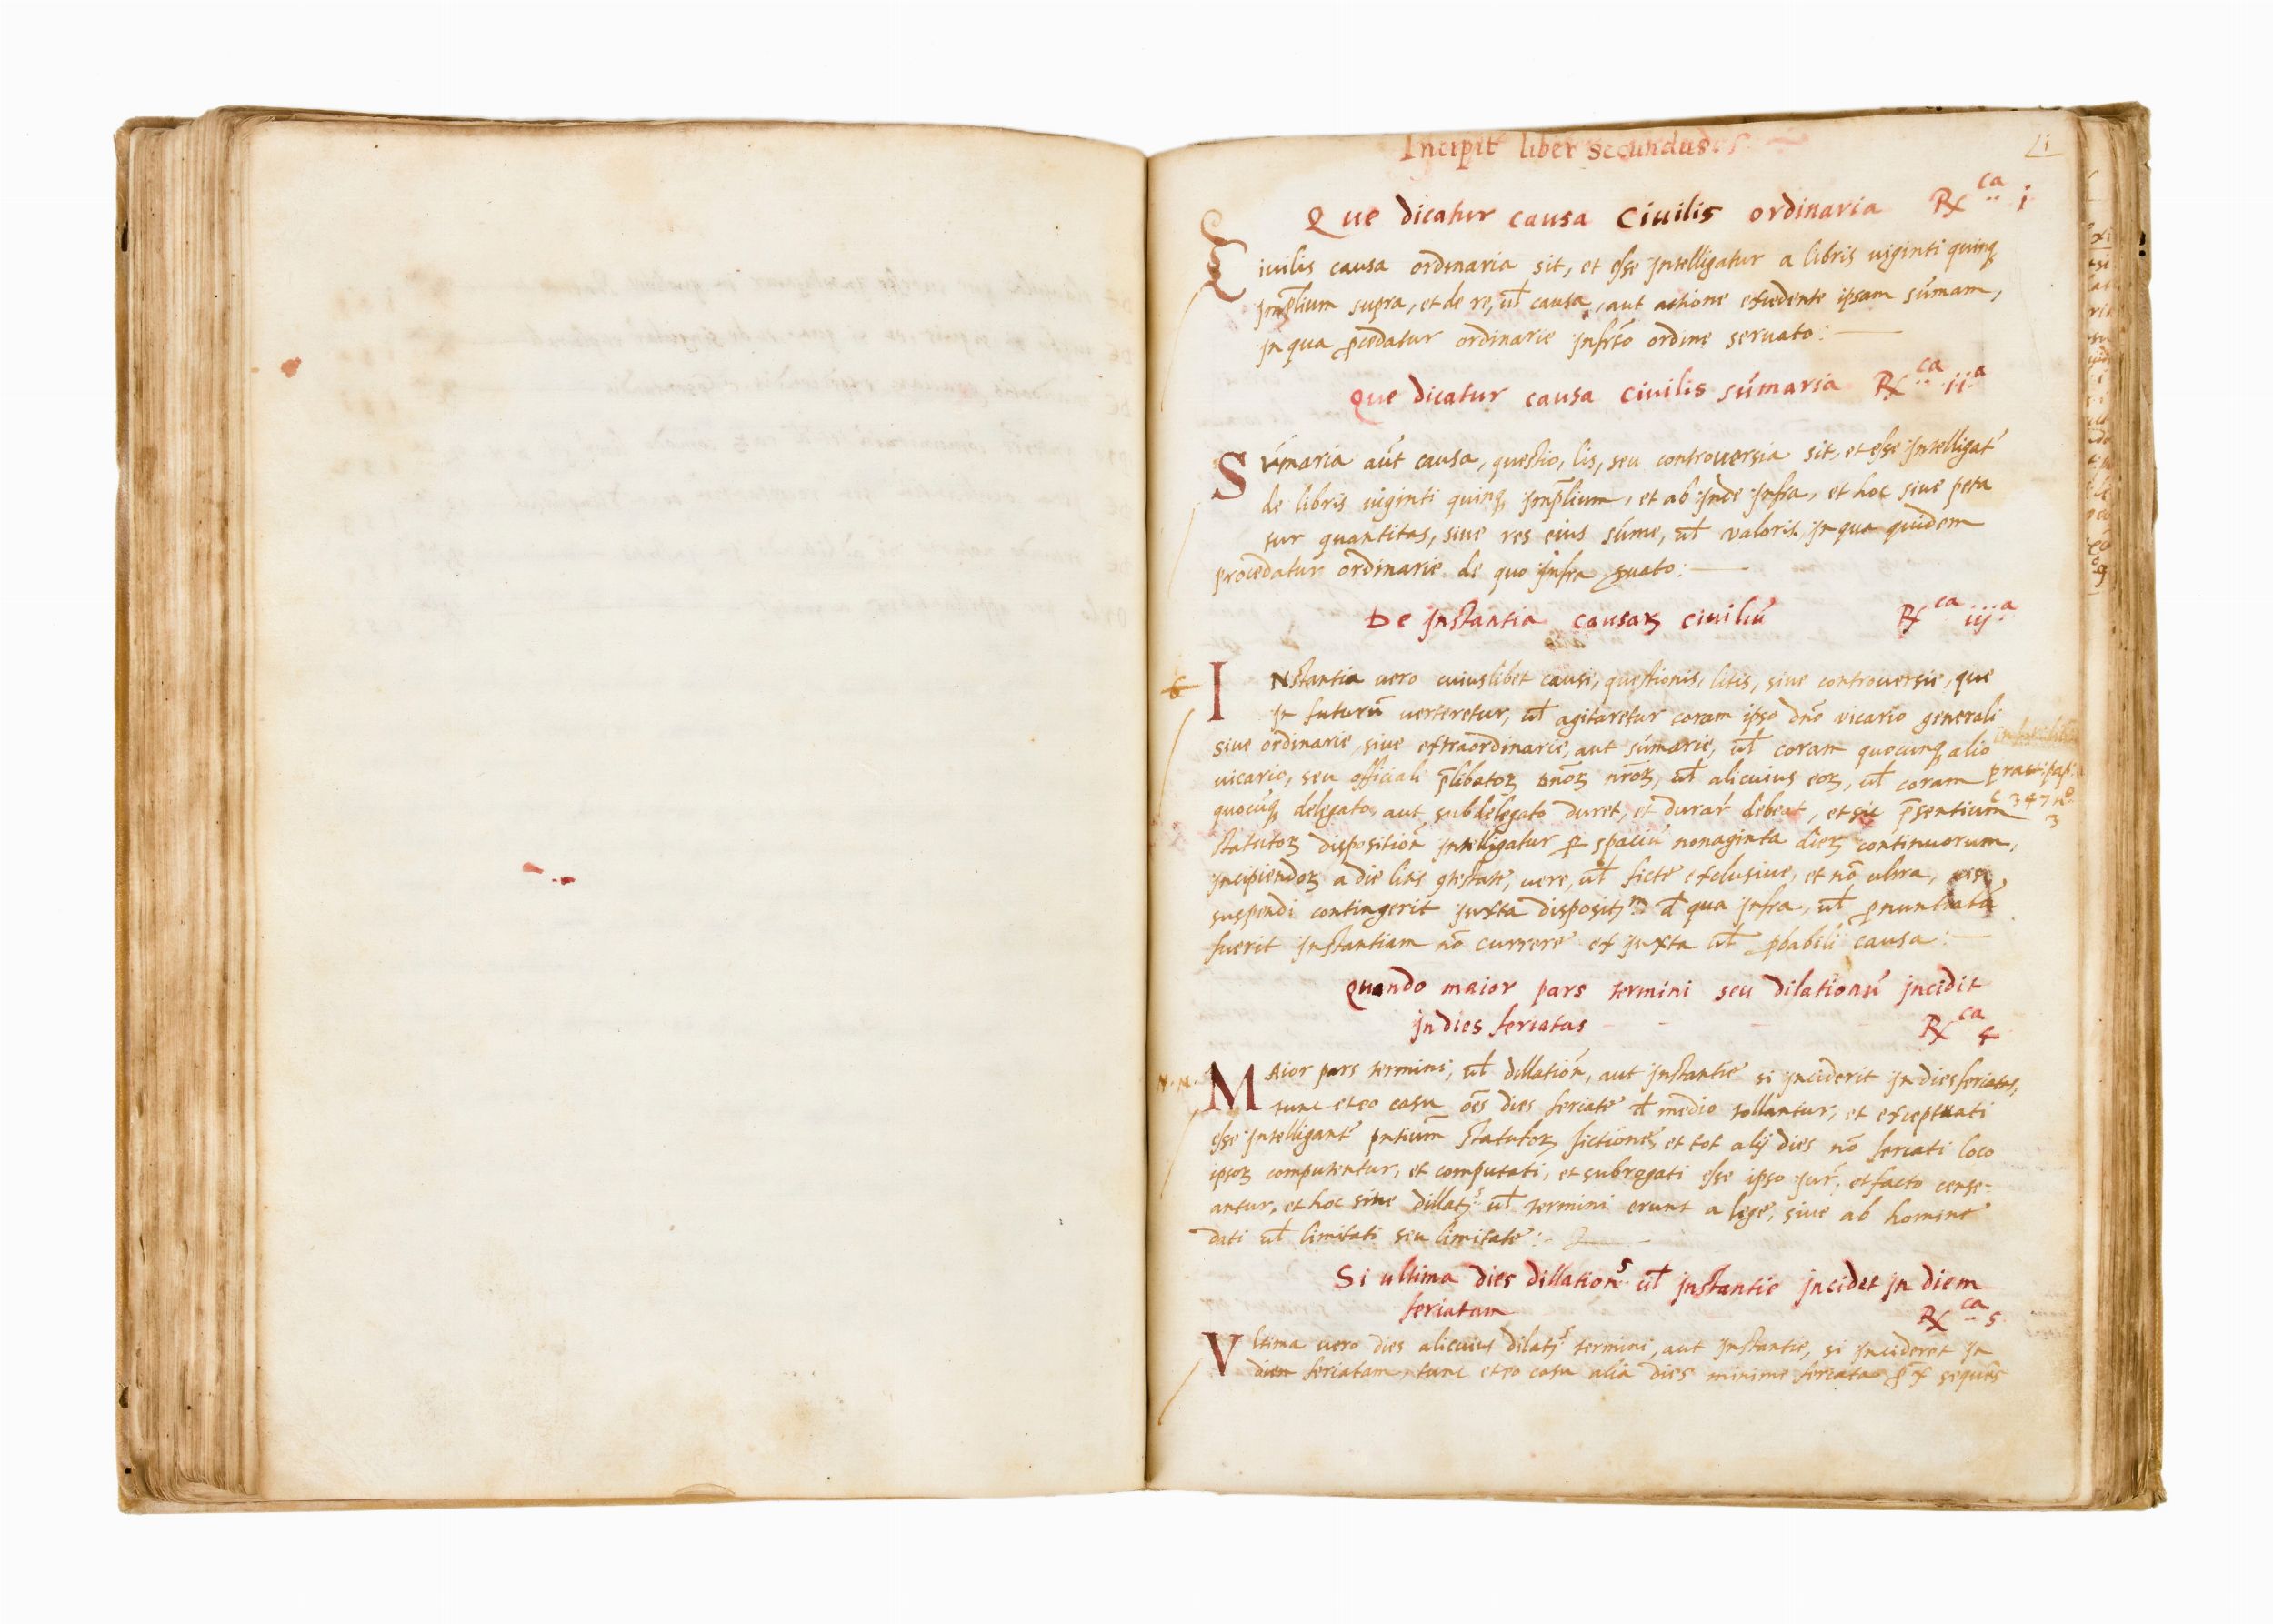 Incipit liber secundus
Li
Que dicatur causa Ciuilis ordinaria Rx ca i
iuilis causa ordinaria sit, et esse jntelligatur a libris uiginti quinq
jmp̄lium supra, et de re, ul̄ causa, aut actione excedente ipsam sūmam,
jn qua p̄cedatur ordinarie jnfrc̄o ordine seruato:
Que dicatur causa Ciuilis sūmaria Rx ca ij a
Sūmaria aūt causa, questio, lis, seu controuersia sit, et esse jntelligat̄
de libris uiginti quinq jmp̄lium, et ab jnde jnfra, et hoc siue peta
tur quantitas, siue res eius sūme, ul̄ valoris, jn qua quidem
procedatur ordinarie de quo jnfra
De jnstantia causaꝝ ciuiliū Rx ca iij a
INstantia uero cuiuslibet cause, questionis, litis, siue controuersie, que
jn futurū uerteretur, ul̄ agitaretur coram ipso dn̄o vicario generali
siue ordinarie, siue extraordinarie, aut sūmarie, ul̄ coram quocunq alio
uicario, seu officiali p̄libatoꝝ dn̄oꝝ nr̄oꝝ, ul̄ alicuius eoꝝ, ul̄ coram
quocūq delegato, aut subdelegato duret, et durar̄ debeat, et sic p̄sentium
347
3
statutoꝝ disposition̄ jntelligatur ꝑ spaciū nonaginta dieꝝ continuorum,
jncipiendoꝝ a die litis ꝯtestate, uere, ul̄ ficte exclusiue, et nō ultra, nisi
suspendi contingerit juxta disposit m d̄ qua jnfra, ul̄
fuerit jnstantiam nō currere ex juxta ul̄ ꝓbabili causa:
Quando maior pars termini seu dilationū jncidit
jn dies feriatas Rx ca 4
MAior pars termini, ul̄ dillation̄, aut jnstantie si jnciderit jn dies feriatas,
tunc et eo casu oēs dies feriate d̄ medio tollantur, et exceptuati
esse jntelligant̄ pn̄tium̄ statutoꝝ fictione, et tot alij dies nō feriati loco
ipsoꝝ computentur, et computati, et subrogati esse ipso jur̄, et facto cense-
antur, et hoc siue dillat s ul̄ termini erunt a lege, siue ab homine
dati ul̄ limitati seu limitate:
Si ultima dies dillation s ul̄ jnstantie jncidet jn diem
feriatam Rx ca 5
Vltima uero dies alicuius dilat s termini, aut jnstantie, si jncideret jn
diem feriatam, tunc et eo casu alia dies minime feriata seques